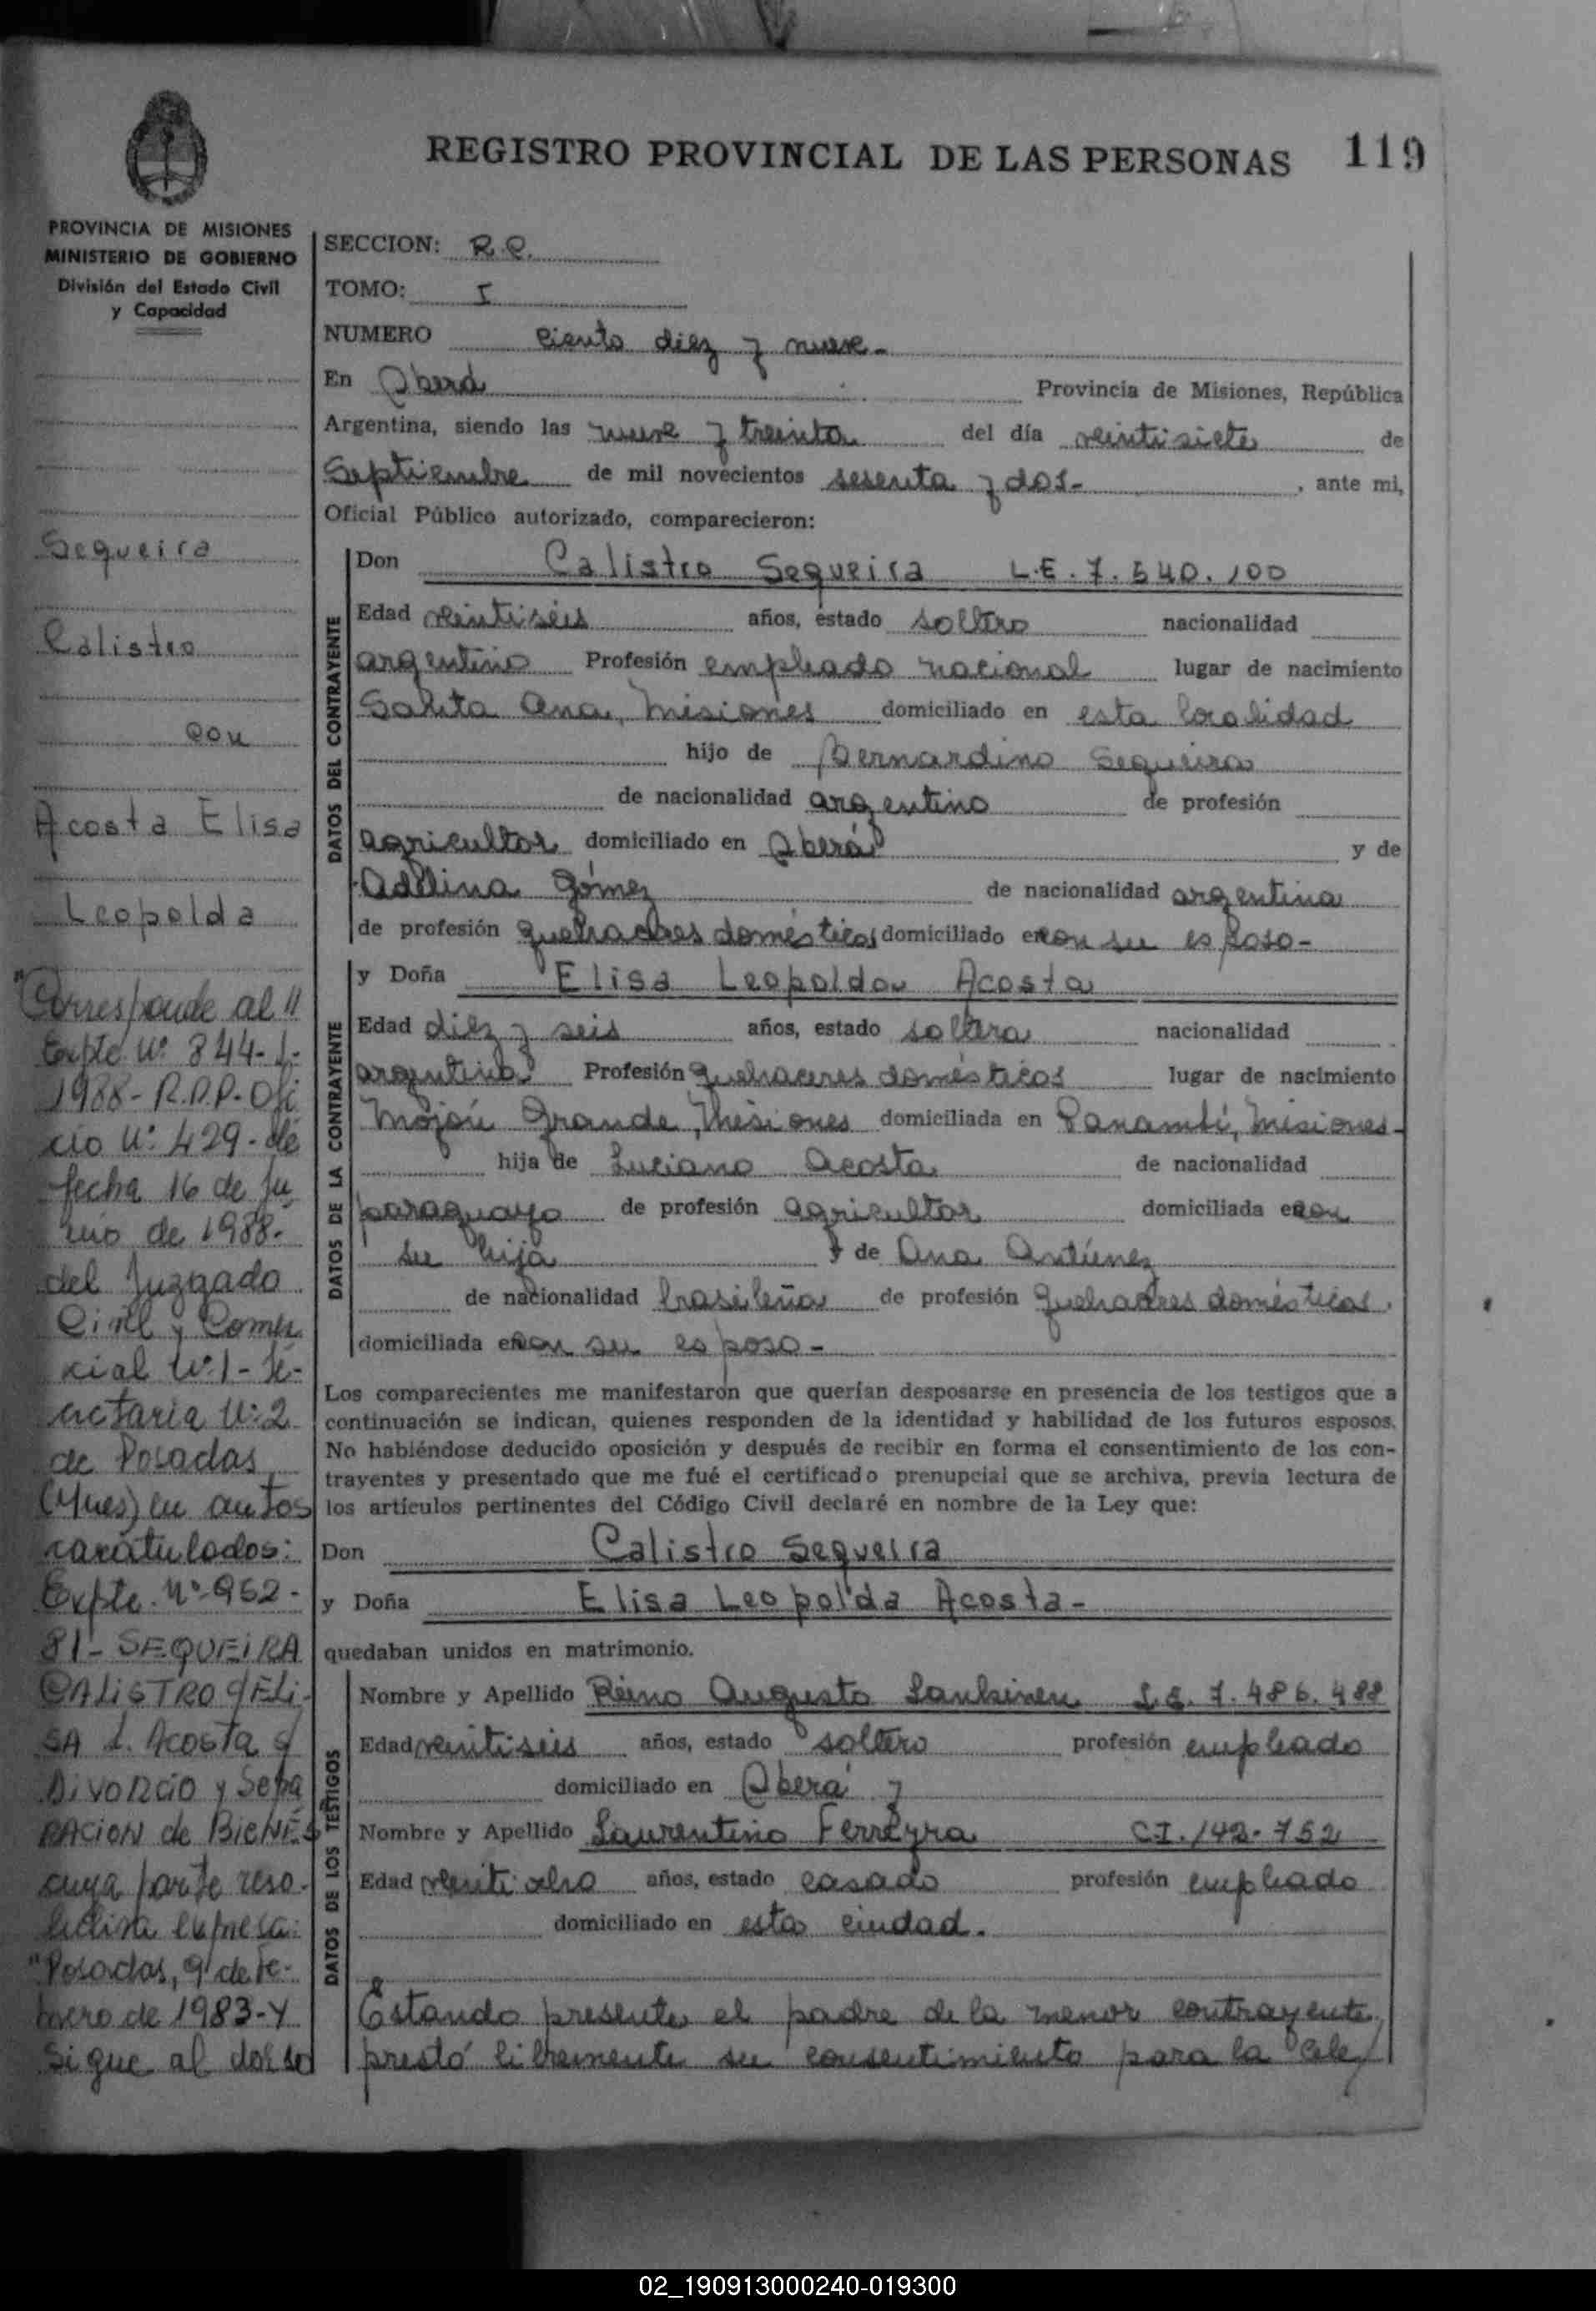 REGISTRO PROVINCIAL DE LAS PERSONAS 119
PROVINCIA DE MISIONES
MINISTERIO DE GOBIERNO
División del Estado Civil
y Capacidad
Sequeira
Calistro
con
Acosta Elisa
Leopolda
"Corresponde al "
Expte Nº 844-L-
1988- R.P.P. Ofi
cio Nº 429- de
fecha 16 de Ju
nio de 1988-
del Juzgado
Civil y Comer
cial Nº 1- Se-
cretaria Nº 2
de Posadas
(Mnes) en autos
caratulados:
Expte. Nº 952-
81- SEQUEIRA
CALISTRO c/ ELI-
SA L. Acosta s/
Divorcio y Sepa
RACION de BIENES
cuya parte reso-
lutiva expresa:
"Posadas, 9 de Fe-
brero de 1983- Y
Sigue al dorso
SECCION: R.C.
TOMO: I
NUMERO ciento diez y nueve-
En Oberá Provincia de Misiones, República
Argentina, siendo las nueve y treinta del día veintisiete de
Septiembre de mil novecientos sesenta y dos- , ante mi,
Oficial Público autorizado, comparecieron:
DATOS DEL CONTRAYENTE
Don Calistro Sequeira L.E. 7.540.100
Edad veintiséis años, estado soltero nacionalidad
argentino Profesión empleado nacional lugar de nacimiento
Santa Ana, Misiones domiciliado en esta localidad
hijo de Bernardino Sequeira
de nacionalidad argentino de profesión
agricultor domiciliado en Oberá y de
Adelina Gómez de nacionalidad argentina
de profesión quehaceres domésticos domiciliado en con su esposo-
DATOS DE LA CONTRAYENTE
y Doña Elisa Leopolda Acosta
Edad diez y seis años, estado soltera nacionalidad
argentina Profesión quehaceres domésticos lugar de nacimiento
Mojón Grande, Misiones domiciliada en Panambí, Misiones-
hija de Luciano Acosta de nacionalidad
paraguayo de profesión agricultor domiciliada en con
su hija y de Ana Antúnez
de nacionalidad brasileña de profesión quehaceres domésticos.
domiciliada en con su esposo-
Los comparecientes me manifestarón que querían desposarse en presencia de los testigos que a
continuación se indican, quienes responden de la identidad y habilidad de los futuros esposos.
No habiéndose deducido oposición y después de recibir en forma el consentimiento de los con-
trayentes y presentado que me fué el certificado prenupcial que se archiva, previa lectura de
los artículos pertinentes del Código Civil declaré en nombre de la Ley que:
Don Calistro Sequeira
y Doña Elisa Leopolda Acosta-
quedaban unidos en matrimonio.
DATOS DE LOS TESTIGOS
Nombre y Apellido Reino Augusto Laukinen L.E. 7.486.488
Edad veintiséis años, estado soltero profesión empleado
domiciliado en Oberá y
Nombre y Apellido Laurentino Ferreyra C.I. 142-752
Edad veintiocho años, estado casado profesión empleado
domiciliado en esta ciudad.
Estando presente el padre de la menor contrayente
prestó libremente su consentimiento para la cele/
02_190913000240-019300